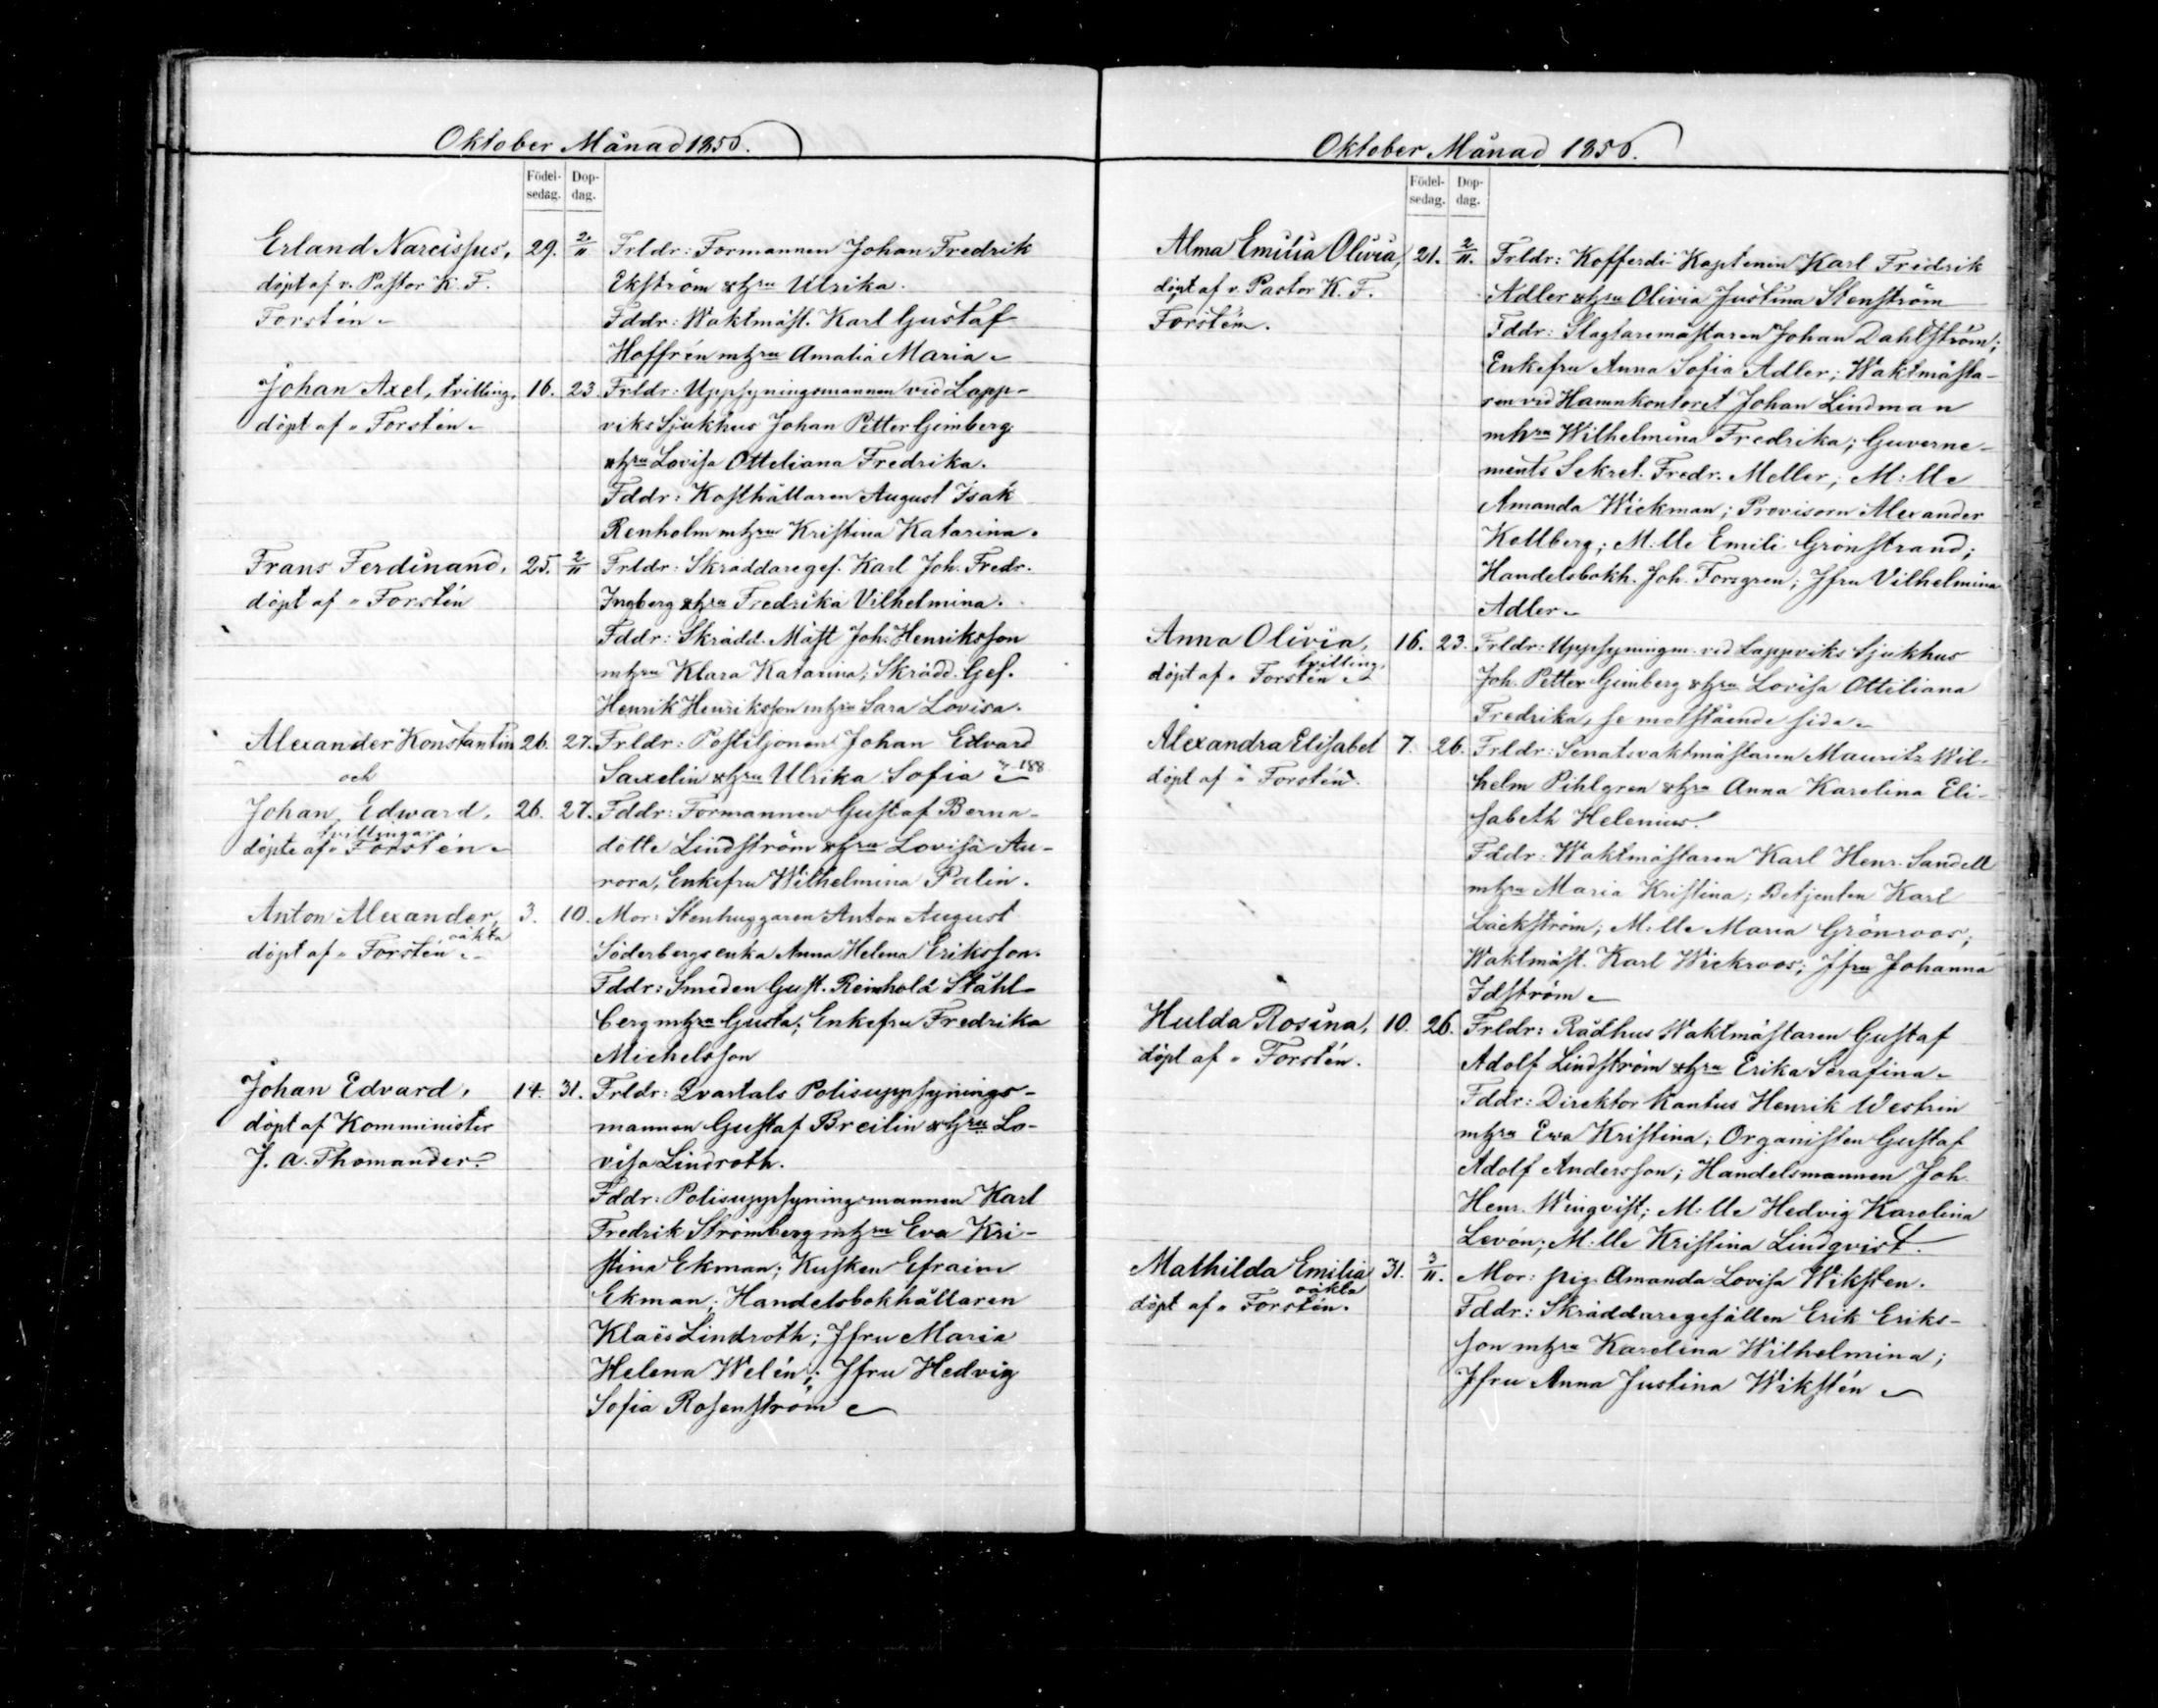 Oktober Månad 1856.
Födel-
sedag.
Dop-
dag.
Erland Narcissus, 29. 2/11 Frldr: Formannen Johan Fredrik
döpt af v. Pastor K. F. Ekström o hru Ulrika.
Forstén. Fddr: Waktmäst. Karl Gustaf
Hoffrén m hru Amalia Maria.
Johan Axel, tvilling, 16. 23 Frldr: Uppsyningsmannen vid Lapp-
döpt af „ Forstén. viks Sjukhus Johan Petter Gimberg
o hru Lovisa Otteliana Fredrika.
Fddr: Kosthållaren August Isak
Renholm m hru Kristina Katarina.
Frans Ferdinand, 25. 2/11 Frldr: Skräddareges. Karl Joh. Fredr.
döpt af „ Forstén Ingberg o hru Fredrika Vilhelmina.
Fddr: Skrädd. Mäst Joh. Henriksson
m hru Klara Katarina; Skrädd. Ges.
Henrik Henriksson m hru Sara Lovisa.
Alexander Konstantin 26. 27. Frldr: Postiljonen Johan Edvard
och Saxelin o hru Ulrika Sofia 188
Johan Edward, 26. 27. Fddr: Formannen Gustaf Berna-
tvillingar
döpte af „ Forstén. dotte Lindström o hru Lovisa Au-
rora, Enkefru Wilhelmina Palin.
Anton Alexander, 3. 10. Mor: Stenhuggaren Anton August
oäkta
döpt af „ Forstén. Söderbergs enka Anna Helena Eriksson.
Fddr: Smeden Gust. Reinhold Ståhl-
berg m hru Gusta; Enkefru Fredrika
Michelsson
Johan Edvard, 14. 31. Frldr: Qvartals Polisuppsynings-
döpt af Komminister mannen Gustaf Breilin o hru Lo-
J. A. Thomander. visa Lindroth.
Fddr: Polisuppsyningsmannen Karl
Fredrik Strömberg m hru Eva Kri-
stina Ekman; Kusken Efraim
Ekman; Handelsbokhållaren
Klaës Lindroth; Jfru Maria
Helena Welén; Jfru Hedvig
Sofia Rosenström
Oktober Månad 1856.
Födel-
sedag.
Dop-
dag.
Alma Emilia Olivia, 21. 2/11. Frldr: Kofferdi Kaptenen Karl Fredrik
döpt af v. Pastor K. F. Adler o hru Olivia Justina Stenström
Forstén. Fddr: Slagtaremästaren Johan Dahlström;
Enkefru Anna Sofia Adler; Waktmästa-
ren vid Hamnkontoret Johan Lindman
m hru Wilhelmina Fredrika; Guverne-
ments Sekret. Fredr. Meller; M:lle
Amanda Wickman; Provisorn Alexander
Kollberg; M:lle Emili Grönstrand;
Handelsbokh. Joh. Forsgren; Jfru Vilhelmina
Adler.
Anna Olivia, 16. 23. Frldr: Uppsyningm. vid Lappviks Sjukhus
tvilling,
döpt af „ Forstén. Joh. Petter Gimberg o hru Lovisa Ottiliana
Fredrika, se motstående sida.
Alexandra Elisabet 7. 26. Frldr: Senatsvaktmästaren Mauritz Wil-
döpt af „ Forstén. helm Pihlgren o hru Anna Karolina Eli-
sabeth Helenius.
Fddr: Waktmästaren Karl Henr. Sandell
m hru Maria Kristina; Betjenten Karl
Bäckström; M:lle Maria Grönroos;
Waktmäst. Karl Wickroos; Jfru Johanna
Idström
Hulda Rosina, 10. 26. Frldr: Rådhus Waktmästaren Gustaf
döpt af „ Forstén. Adolf Lindström o hru Erika Serafina.
Fddr: Direktor Kantus Henrik Westrin
m hru Ewa Kristina; Organisten Gustaf
Adolf Andersson; Handelsmannen Joh.
Henr. Winqvist; M:lle Hedvig Karolina
Levón; M:lle Kristina Lindqvist.
Mathilda Emilia 31. 3/11. Mor: pig. Amanda Lovisa Wiksten.
oäkta
döpt af „ Forstén. Fddr: Skräddaregesällen Erik Eriks-
son m hru Karolina Wilhelmina;
Jfru Anna Justina Wikstén